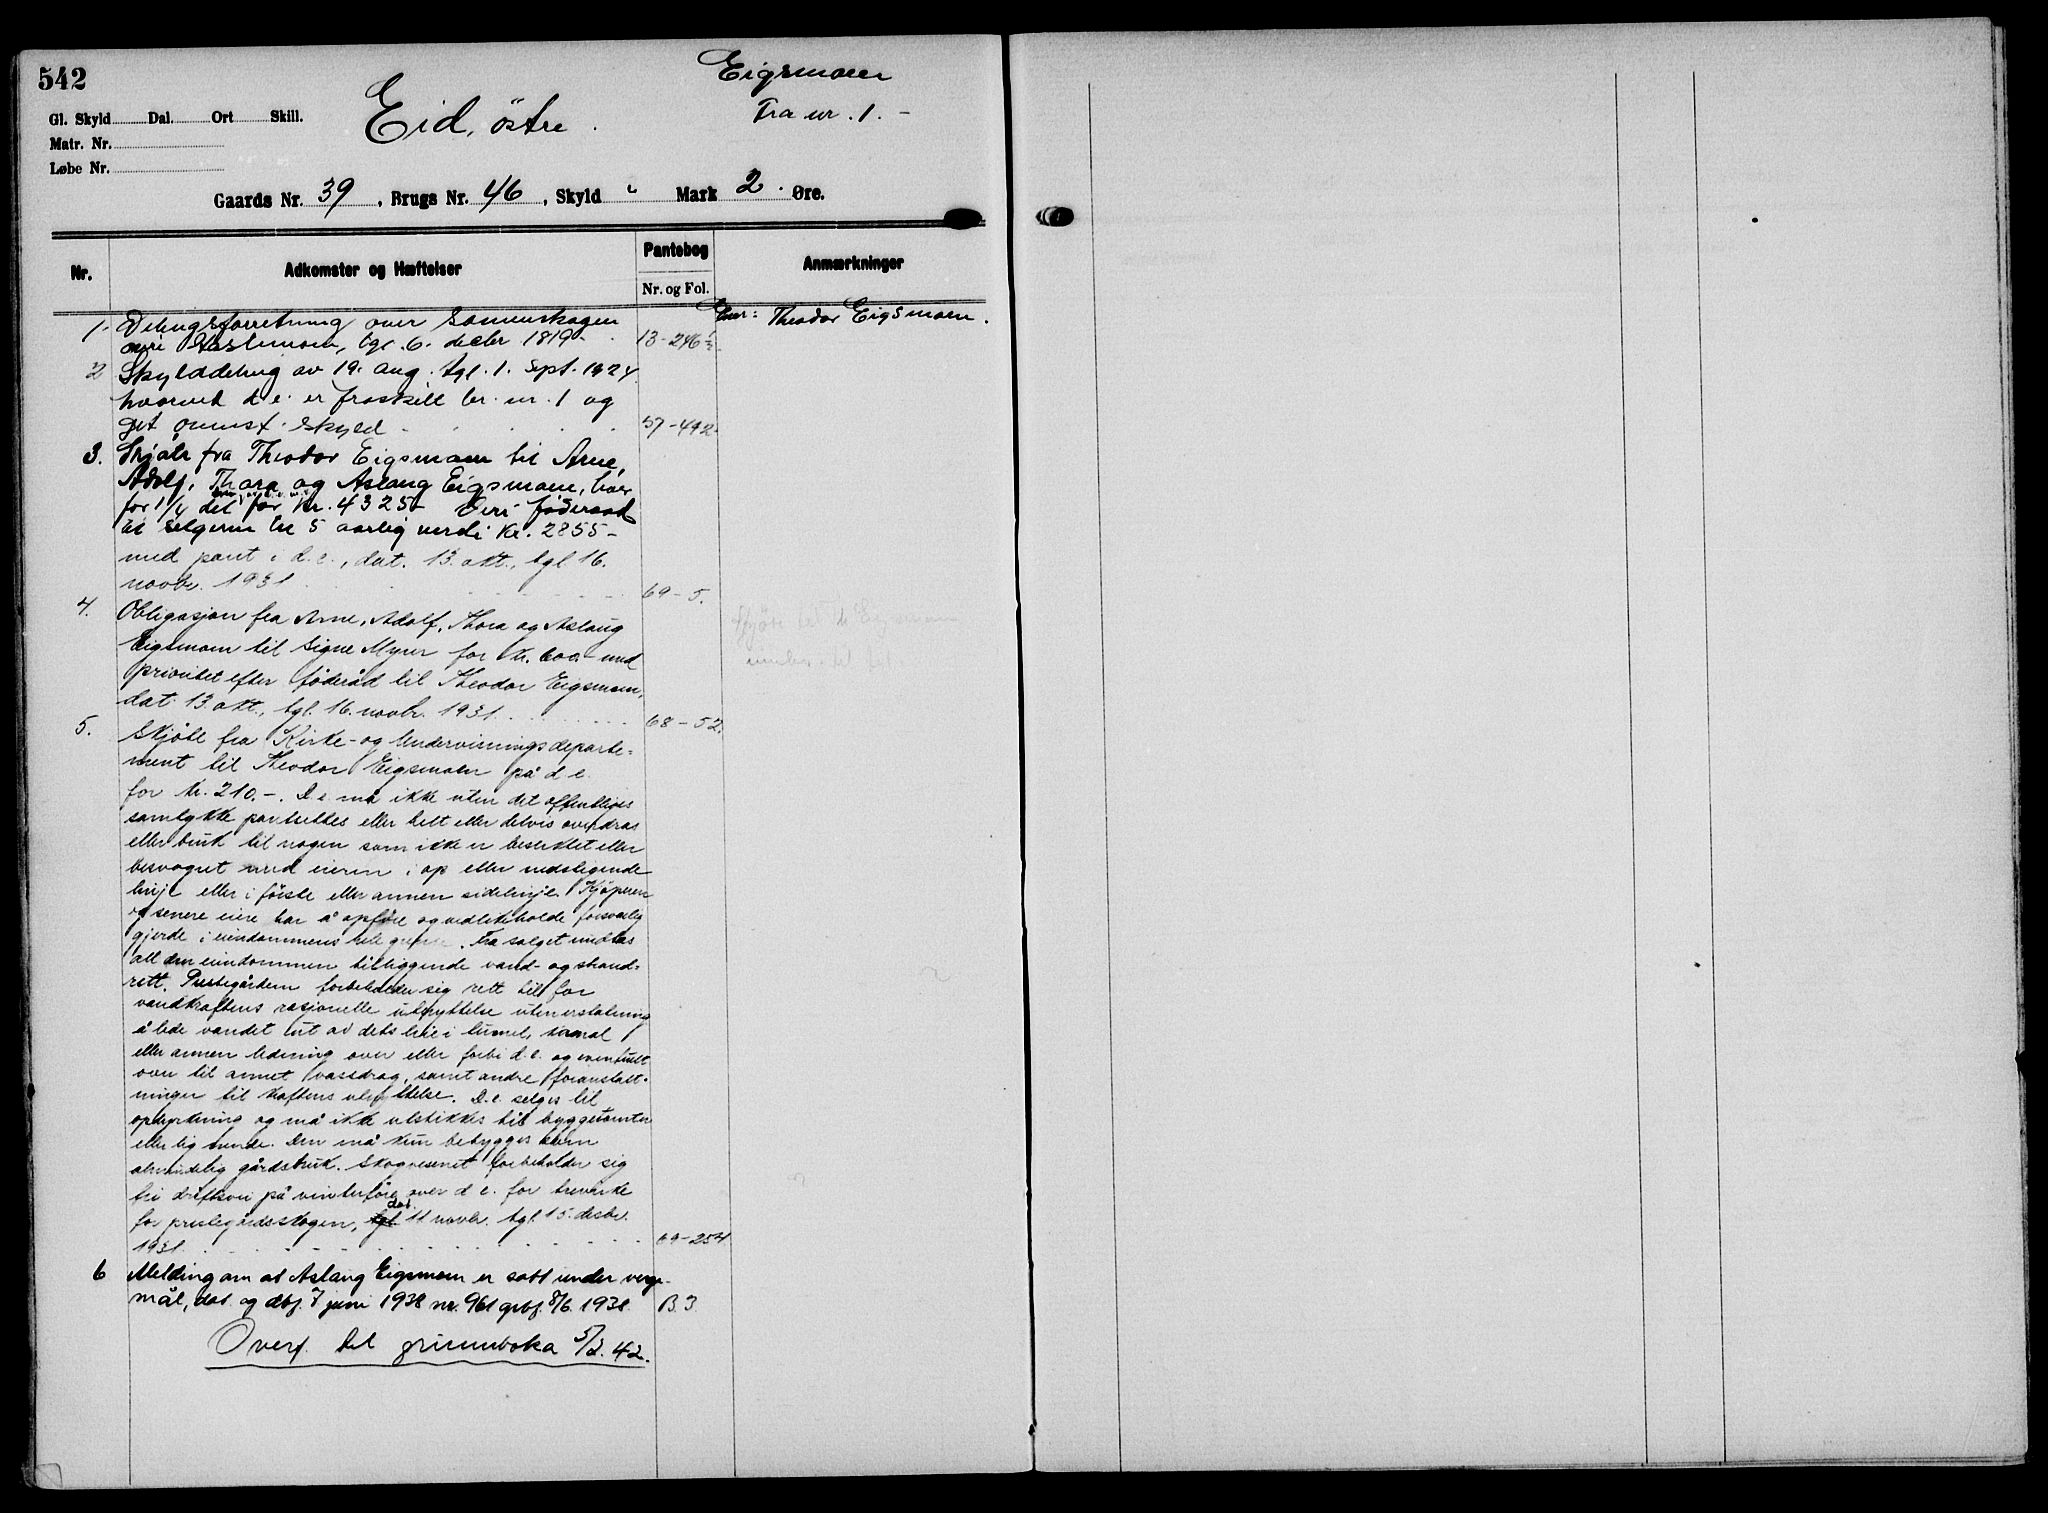 542
Eigsmoen
Gl. Skyld Dal. Ort Skill.
Eid, östre.
Fra nr. 1. -
Matr. Nr.
Løbe Nr.
Gaards Nr. 39, Brugs Nr. 46, Skyld " Mark 2. Øre.
Nr.
Adkomster og Hæftelser
Pantebog
Nr. og Fol.
Anmærkninger
Eier: Theodor Eigsmoen.
1. Delingsforretning over
tgl. 6. decbr 1819. 13-246
2 Skylddeling av 19. aug. tgl. 1. sept. 1924
hvorved d.e. er fraskilt br. nr. 1 og
git omnst. skyld 57-492
3. Skjøte fra Theodor Eigsmoen til Arne,
Adolf, Thora og Aslaug Eigsmoen, hver
for 1/4 del for kr. 4325- föderaad
til selgeren til 5 aarlig verdi kr. 2855-
med pant i d.e., dat. 13. okt., tgl 16.
novbr. 1931 69-5.
4. Obligasjon fra Arne, Adolf, Thora og Aslaug
Eigsmoen til Signe Myrer for kr. 600.- med
prioritet efter föderåd til Theodor Eigsmoen,
dat. 13. okt., tgl. 16. novbr. 1931. 68-52.
5. Skjöte fra Kirke- og Undervisningsdeparte-
ment til Theodor Eigsmoen på d e.
for kr. 210.-. D.e. må ikke uten det offentliges
samtykke pantsettes eller helt eller delvis overdras
eller bruk til nogen som ikke er beslektet eller
besvogret med eieren i op eller nedstigende
linje eller i förste eller annen sidelinje. Kjöperen
og senere eiere har å opföre og vedlikeholde forsvarlig
gjerde i eiendommens hele grense. Fra salget undtas
all den eiendommen tilliggende vand- og strand-
rett. Prestegården forbeholder sig rett til for
vandkraftens rasjonelle utnyttelse uten erstatning
å lede vandet ut av dets leie i tunnel, kanal
eller annen ledning over eller forbi d.e. og eventuelt
over til annet vassdrag, samt andre foranstalt-
ninger til kraftens utnyttelse. D.e. selges til
opdyrkning og må ikke utstikkes til byggetomter
eller lignende. Den må kun bebygges som
almindelig gårdsbruk. Skogvesenet forbeholder sig
fri driftsvei på vinterföre over d e. for trevirke
for prestegårdsskogen, dat. 11 novbr. tgl. 15. desbr.
1931. 69-254
6 Melding om at Aslaug Eigsmoen er satt under verge-
mål, dat. og dbf. 7 juni 1938 nr. 961 grbf. 8/6. 1938. B.3.
Overf. til grunnboka 5/2. 42.